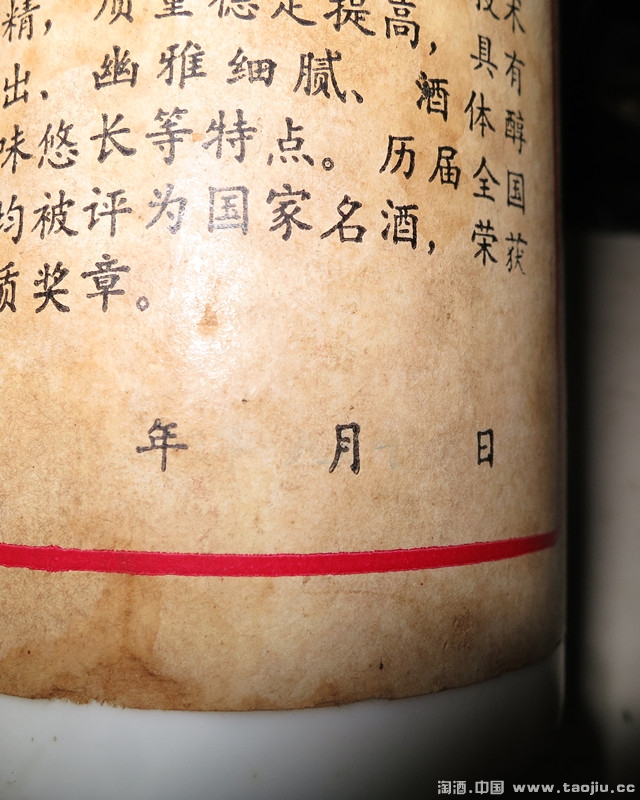 精，质量稳定提高，技术
出、幽雅细腻、酒具有
味悠长等特点。历届体醇
均被评为国家名酒，全国
质奖章。荣获
年 月 日
淘酒.中国 www.taojiu.cc